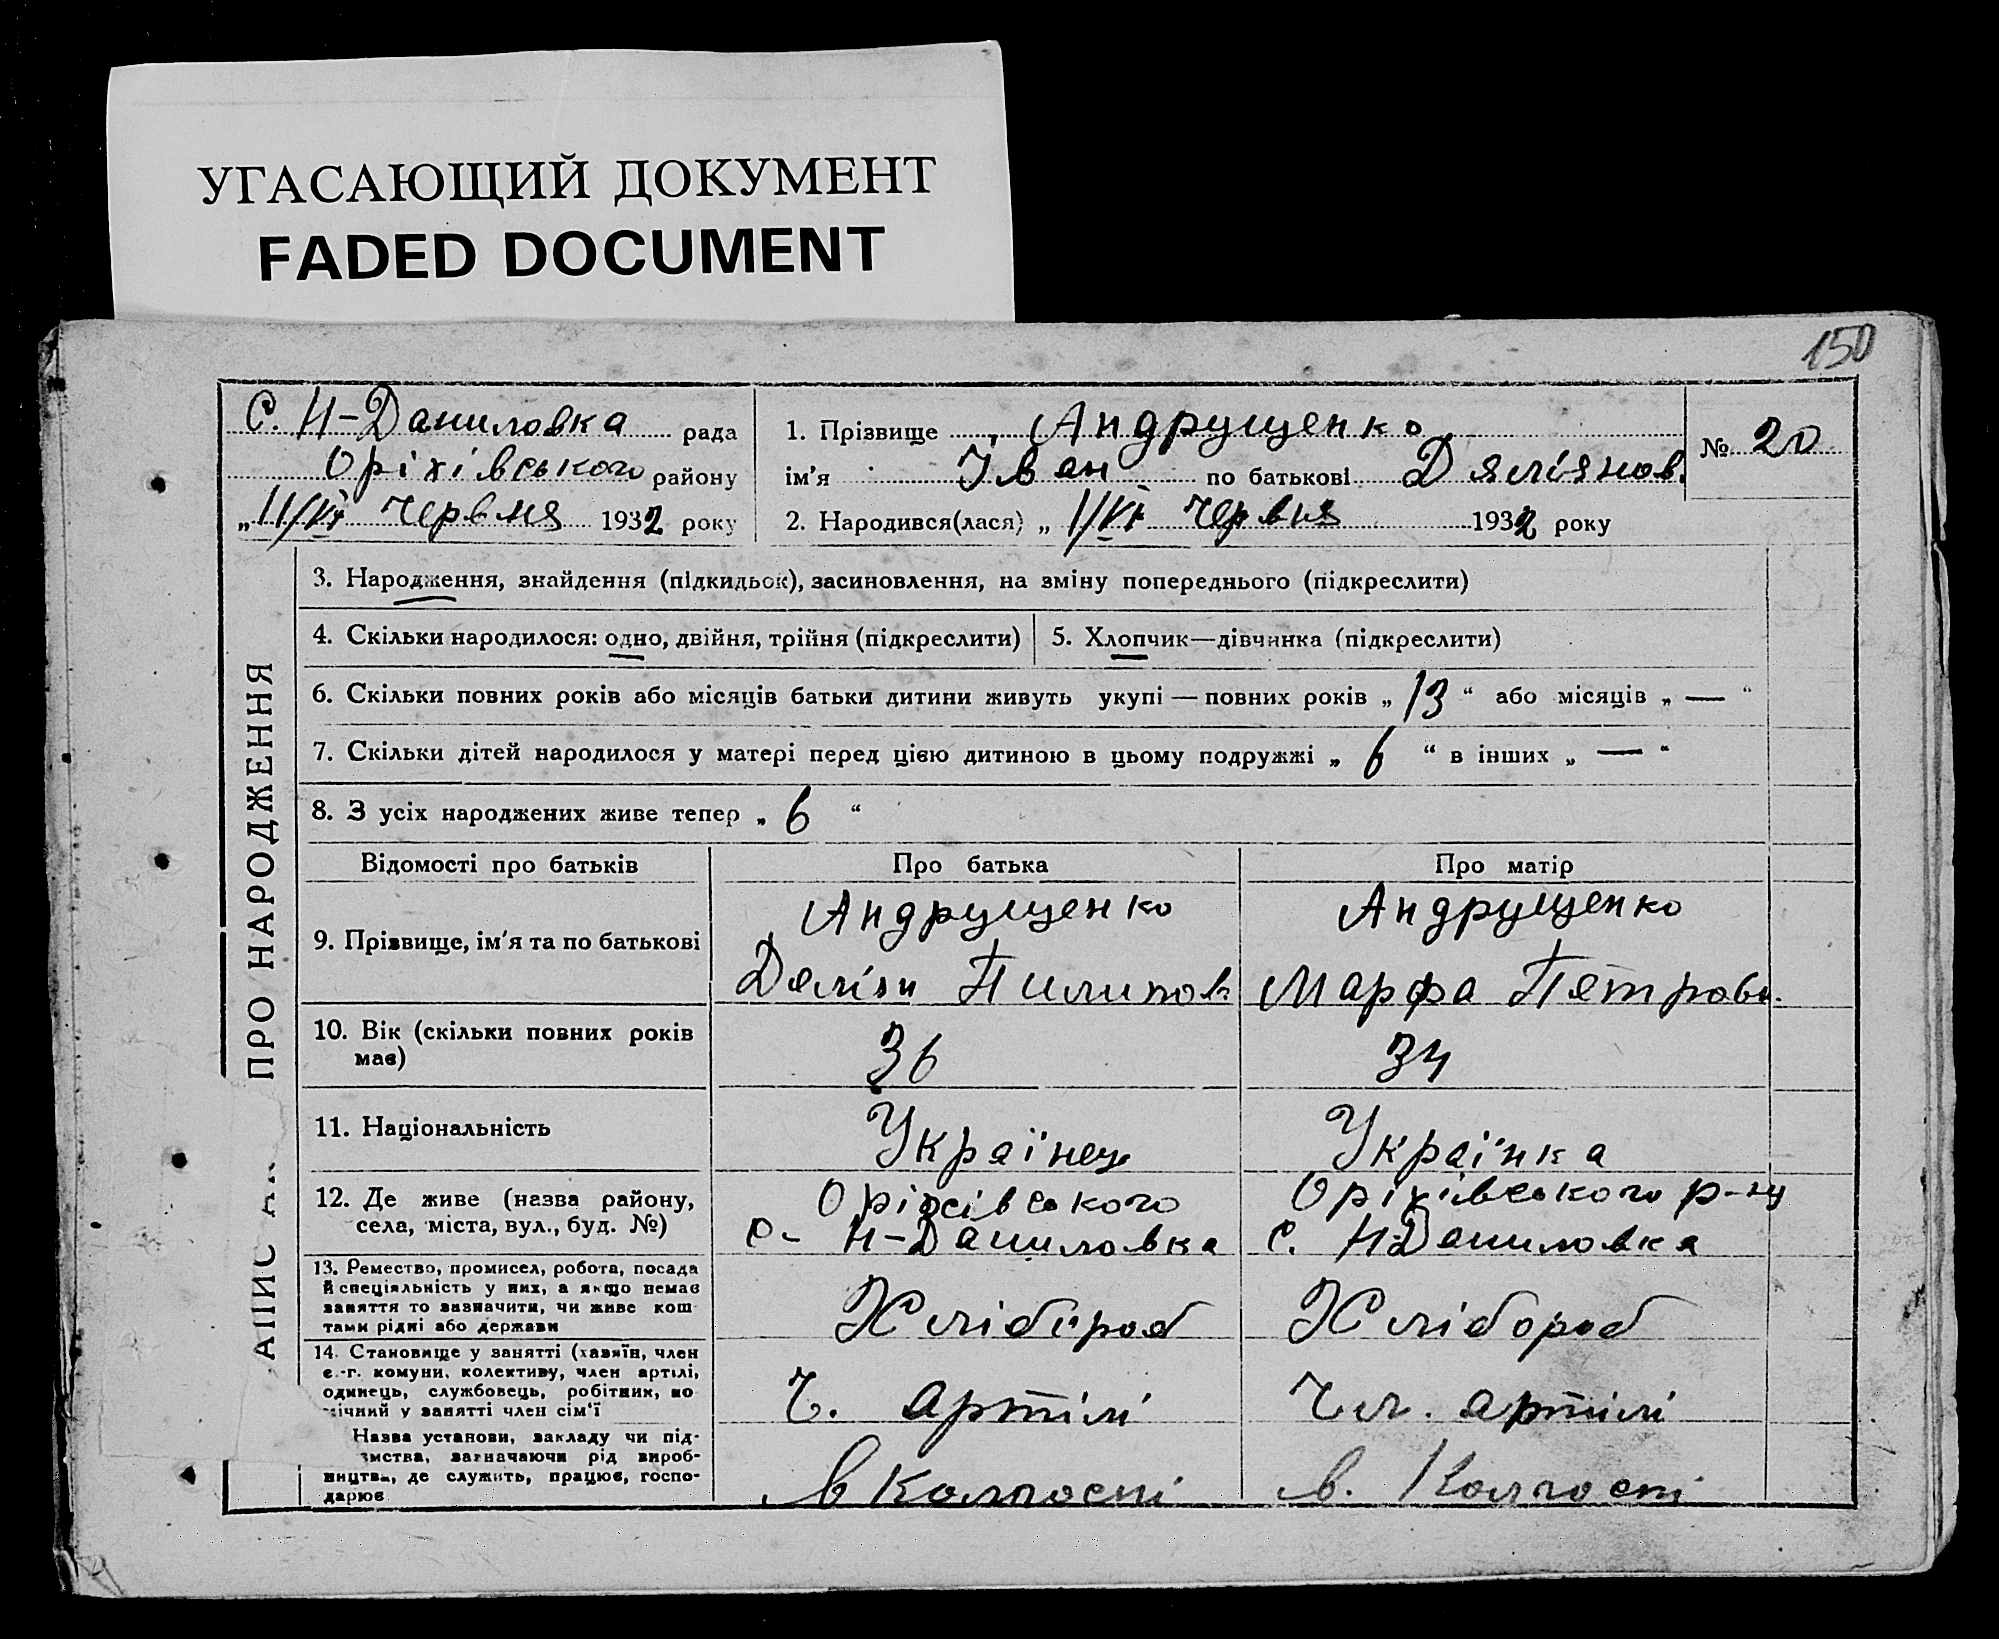 УГАСАЮЩИЙ ДОКУМЕНТ
FADED DOCUMENT
150
С. Н-Даниловка рада
Оріхівського району
„ 11/VI Червня 1932 року
1. Прізвище Андрущенко
ім'я Іван по батькові Дяміянов.
2. Народився(лася) „ 1/VI Червня 1932 року
№ 20
ПРО НАРОДЖЕННЯ
3. Народження, знайдення (підкидьок), засиновлення, на зміну попереднього (підкреслити)
4. Скільки народилося: одно, двійня, трійня (підкреслити)
5. Хлопчик—дівчинка (підкреслити)
6. Скільки повних років або місяців батьки дитини живуть укупі — повних років „ 13 “ або місяців „ — “
7. Скільки дітей народилося у матері перед цією дитиною в цьому подружжі „ 6 “ в інших „ — “
8. З усіх народжених живе тепер „ 6 “
Відомості про батьків
Про батька
Про матір
9. Прізвище, ім'я та по батькові
Андрущенко
Дяміян Пилипов.
Андрущенко
Марфа Пятровн.
10. Вік (скільки повних років
має)
36
34
11. Національність
Українец
Українка
12. Де живе (назва району,
села, міста, вул., буд. №)
Оріхівського
с- Н-Даниловка
Оріхівського р-ну
с. Н-Даниловка
13. Ремество, промисел, робота, посада
й спеціяльність у них, а якщо немає
заняття то зазначити, чи живе кош-
тами рідні або держави
Хлібороб
Хлібороб
14. Становище у занятті (хазяїн, член
с.-г. комуни, колективу, член артілі,
одинець, службовець, робітник, по-
мічний у занятті член сім'ї
Ч. артілі
Чл. артілі
Назва установи, закладу чи під-
ємства, зазначаючи рід вироб-
ництва, де служить, працює, госпо-
дарює
в Колгоспі
в. Колгоспі